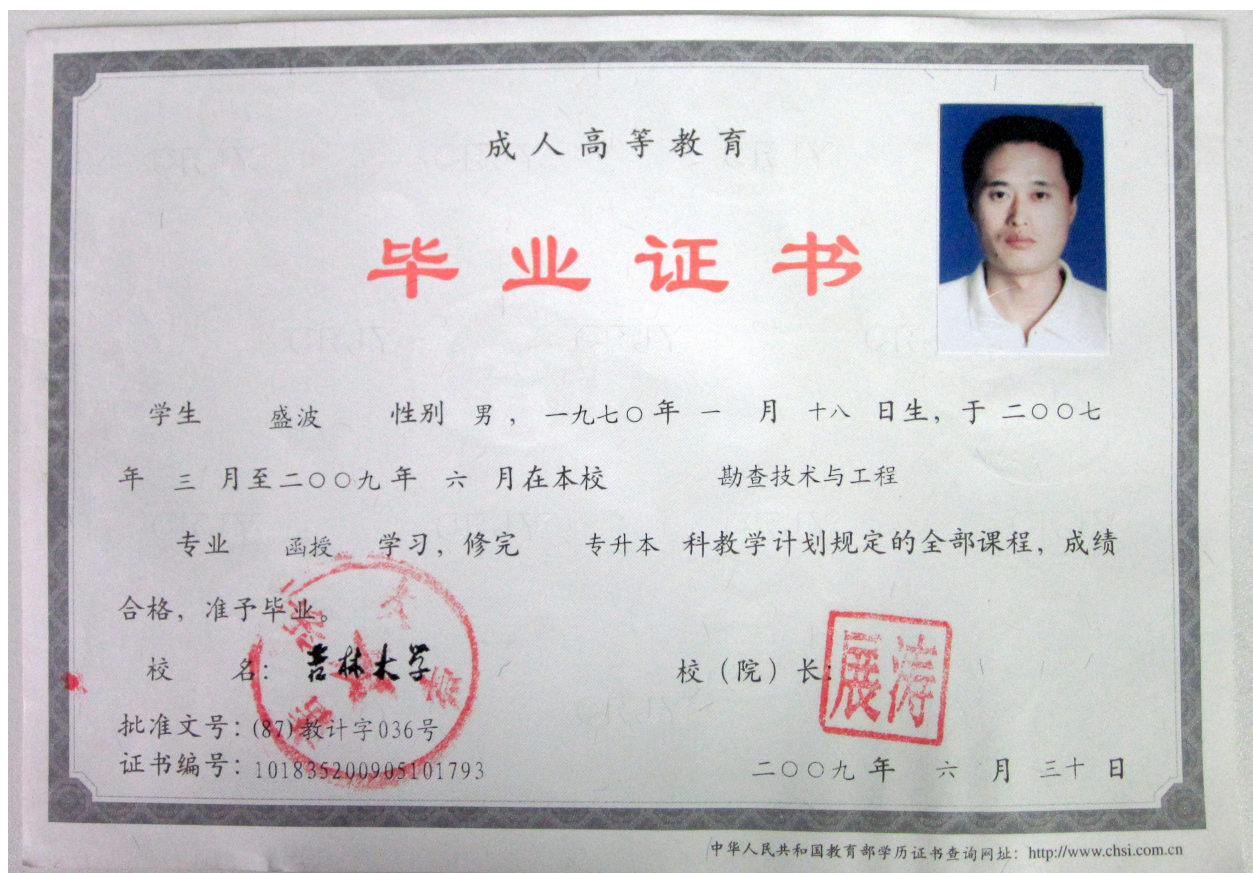 成人高等教育
毕业证书
学生 盛波 性别 男，一九七〇年 一 月 十八 日生，于 二〇〇七
年 三 月至二〇〇九年 六 月在本校 勘查技术与工程
专业 函授 学习，修完 专升本 科教学计划规定的全部课程，成绩
合格，准予毕业。
校 名：吉林大学
校（院）长：展涛
批准文号：(87)教计字036号
证书编号：101835200905101793
二〇〇九年 六 月 三十 日
中华人民共和国教育部学历证书查询网址：http://www.chsi.com.cn